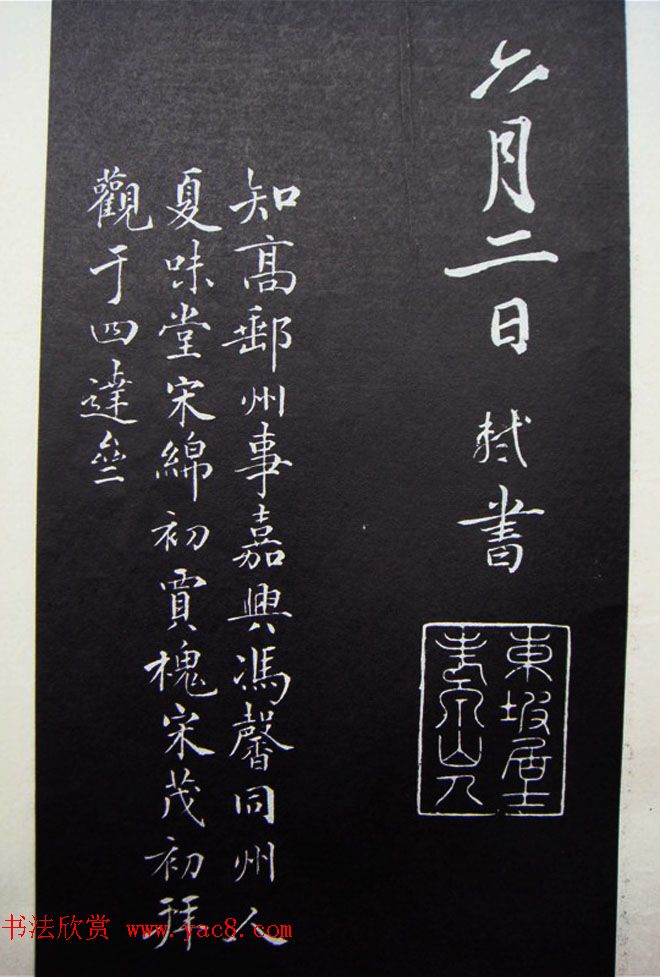 六月二日 軾書
東坡居士
老泉山人
知髙郵州事嘉興馮馨同州人
夏味堂宋綿初賈槐宋茂初拜
觀于四達亝
书法欣赏 www.yac8.com